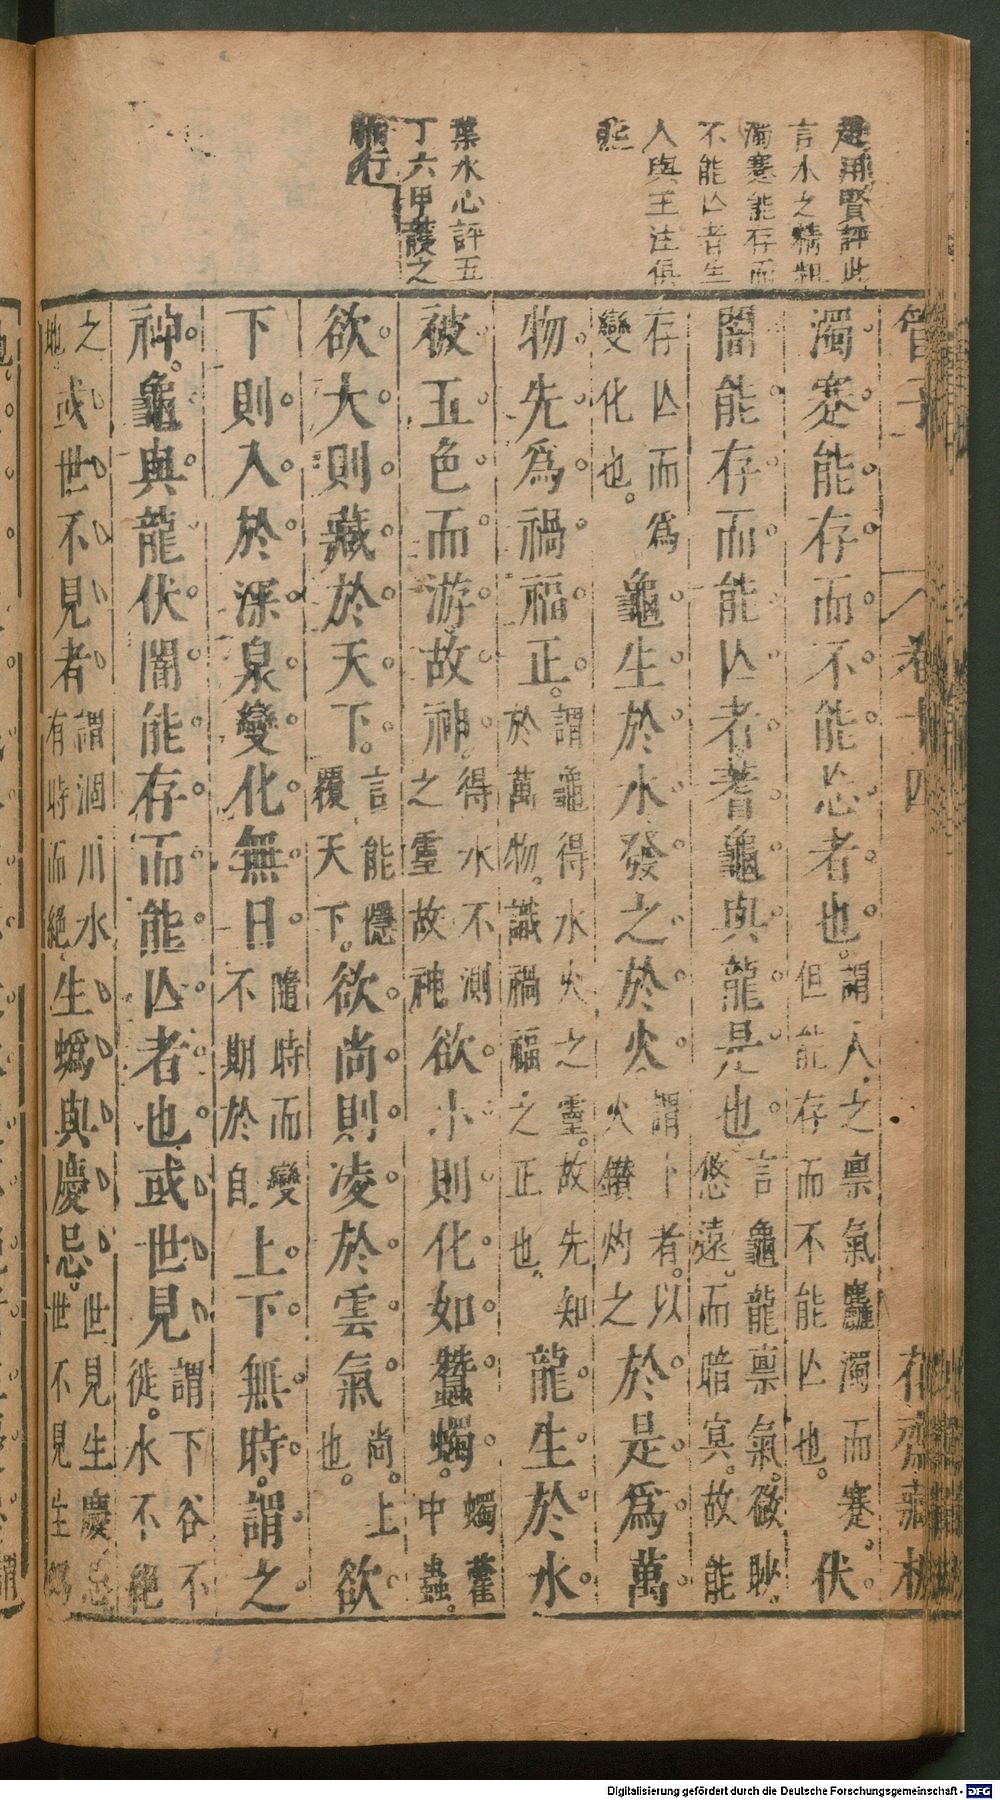 趙用賢評此
言水之精粗
濁蹇能存而
不能亾者生
人與玉注俱
葉水心評五
丁六甲叢之
管子
卷十四
花齋藏板
濁蹇能存而不能亾者也謂人之禀氣麤濁而蹇但能存而不能亾也伏
闇能存而能亾者蓍龜與龍是也言龜龍禀氣微眇悠遠而暗冥故能
存亾而為變化也龜生於水發之於火謂卜者以火鑽灼之於是為萬
物先為禍福正謂龜得水火之靈故先知於萬物識禍福之正也龍生於水
被五色而游故神得水不測之靈故神欲小則化如蠶蠋蠋藿中蟲
欲大則藏於天下言能隱覆天下欲尚則凌於雲氣尚上也欲
下則入於深泉變化無日隨時而變不期於自上下無時謂之
神龜與龍伏闇能存而能亾者也或世見謂下谷不徙水不絕
之地或世不見者謂涸川水有時而絕生蟡與慶忌世見生慶忌世不見生蟡
Digitalisierung gefördert durch die Deutsche Forschungsgemeinschaft - DFG